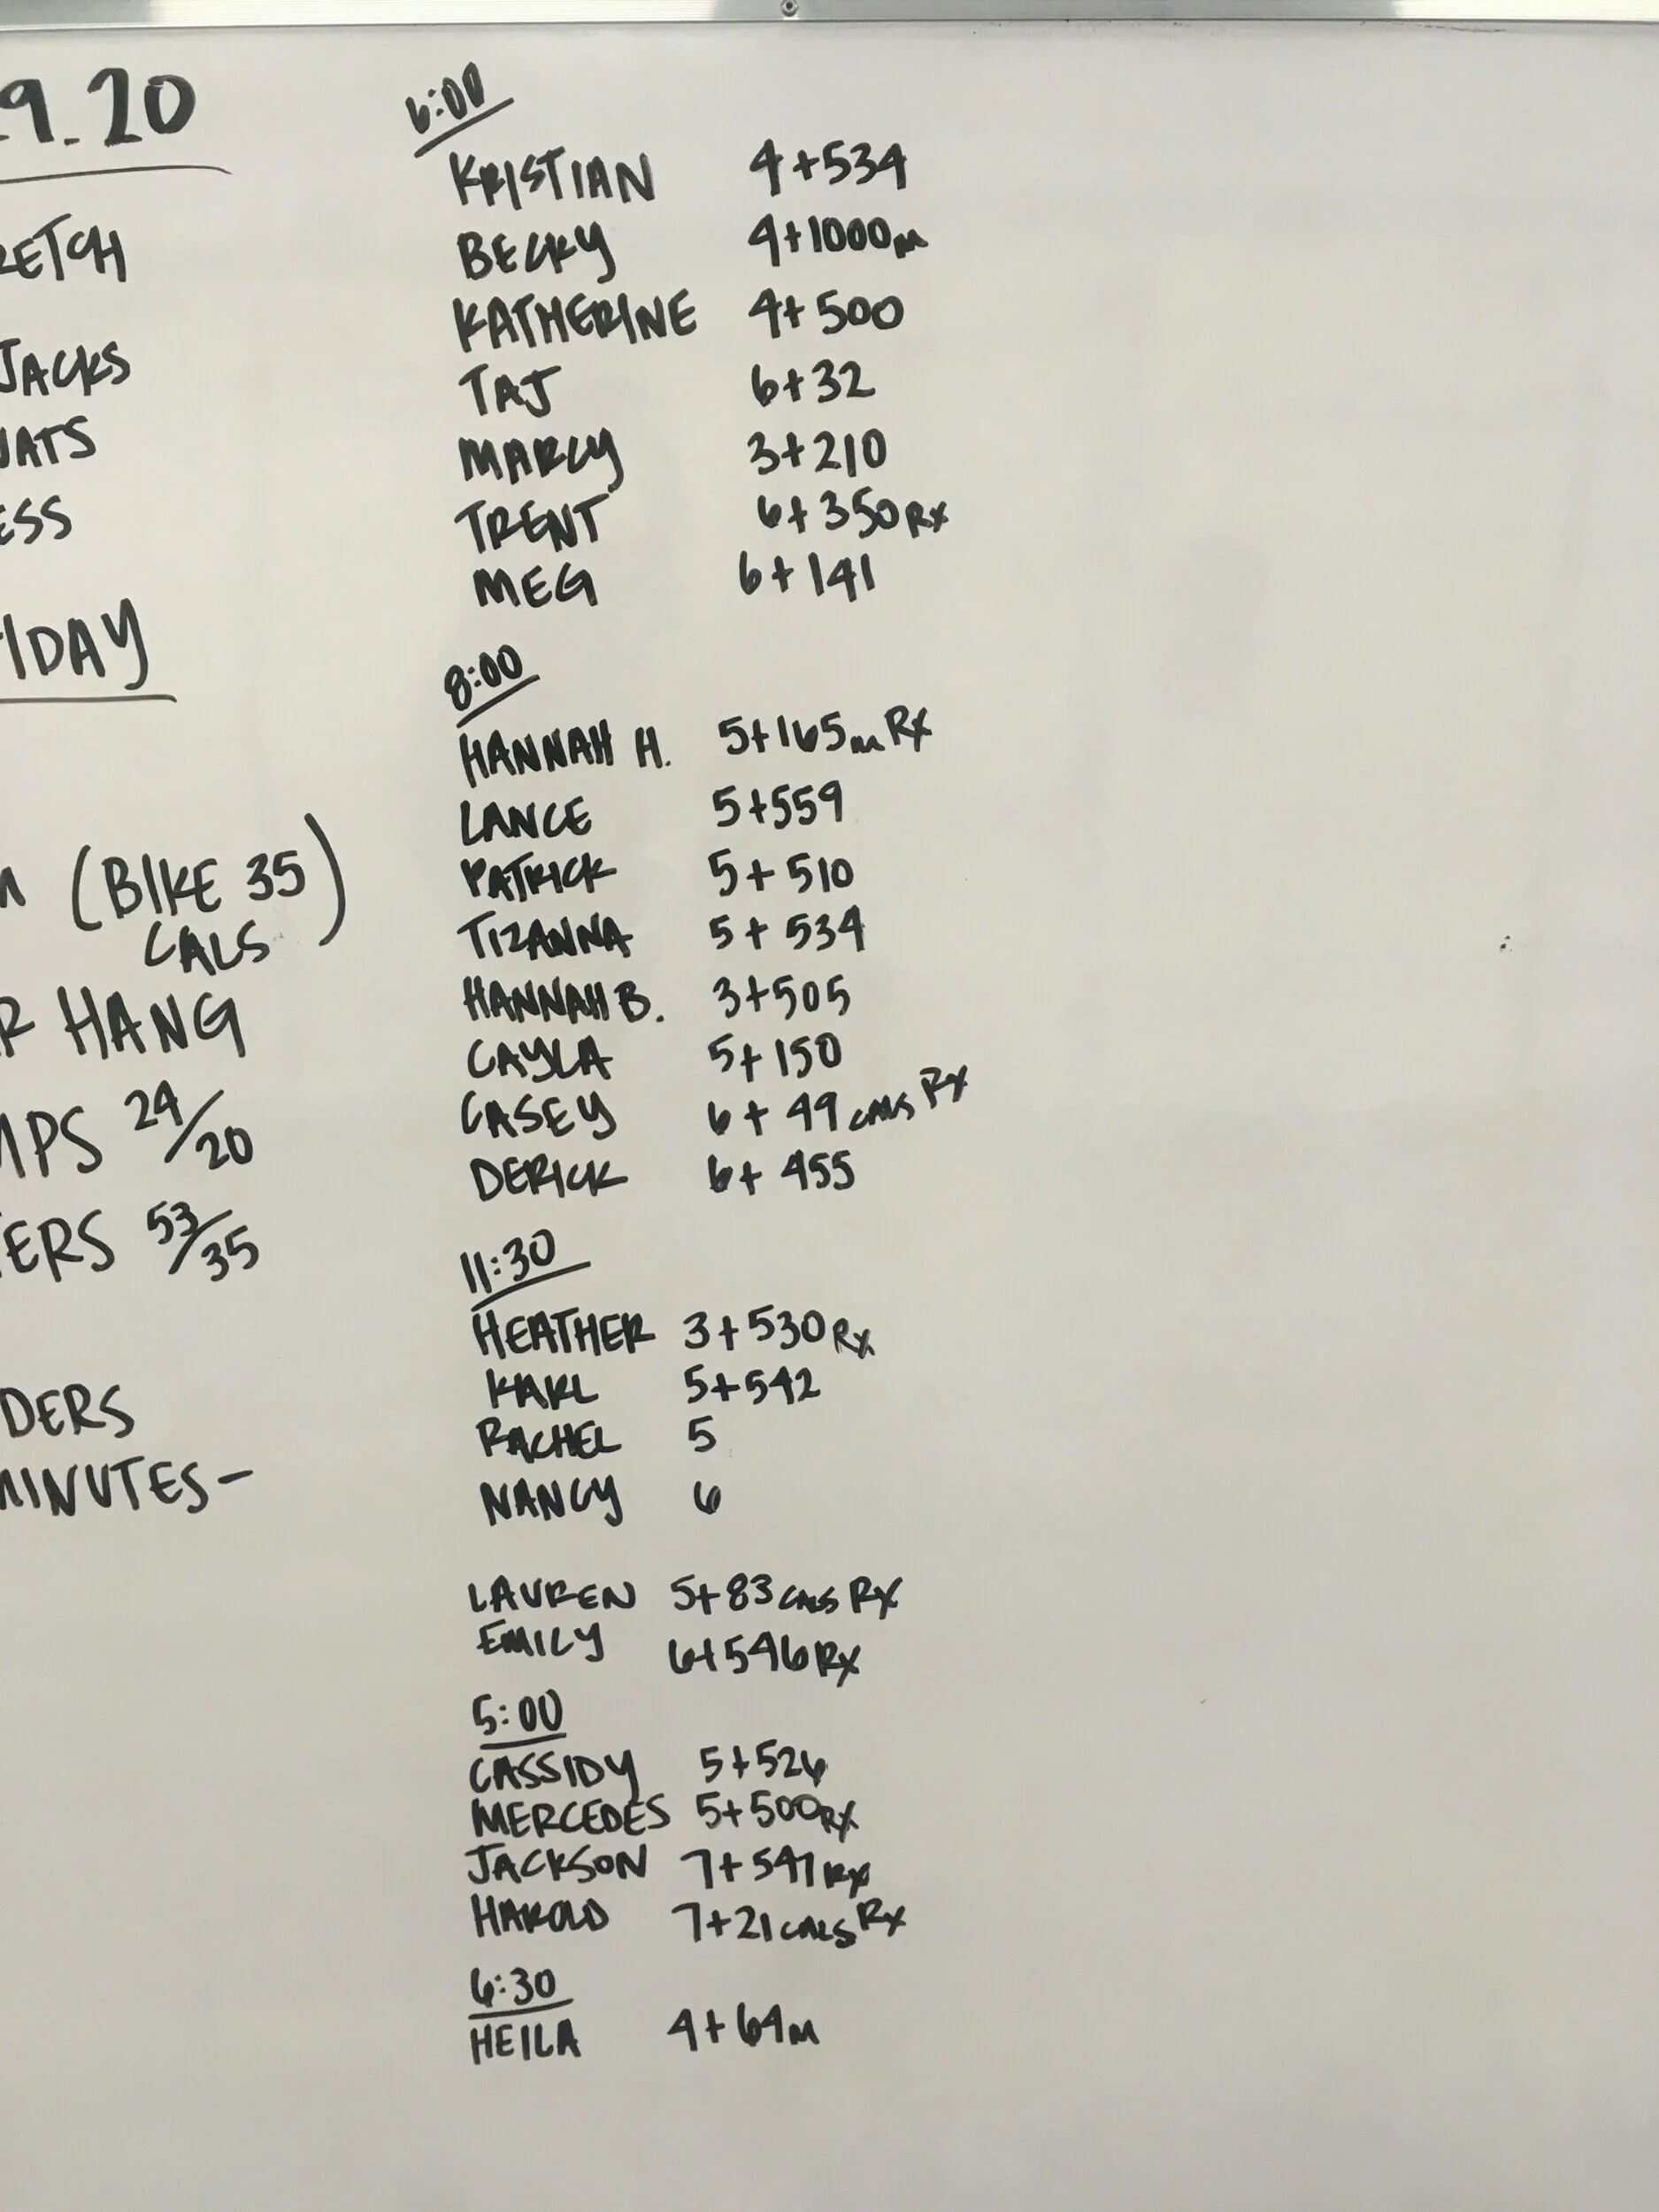 9.20
RETCH
JACKS
UATS
ESS
IDAY
(BIKE 35)
CALS
R HANG
MPS 24/20
TERS 53/35
DERS
MINUTES-
6:00
KRISTIAN 4+534
BECKY 4+1000m
KATHERINE 4+500
TAJ 6+32
MARCY 3+210
TRENT 6+350 Rx
MEG 6+141
8:00
HANNAH H. 5+165m Rx
LANCE 5+559
PATRICK 5+510
TIZANNA 5+534
HANNAH B. 3+505
CAYLA 5+150
CASEY 6+49 CALS Rx
DERICK 6+455
11:30
HEATHER 3+530 Rx
KARL 5+542
RACHEL 5
NANCY 6
LAUREN 5+83 CALS RX
EMILY 6+546 RX
5:00
CASSIDY 5+526
MERCEDES 5+500 RX
JACKSON 7+541 Rx
HAROLD 7+21 CALS Rx
6:30
HEILA 4+64m